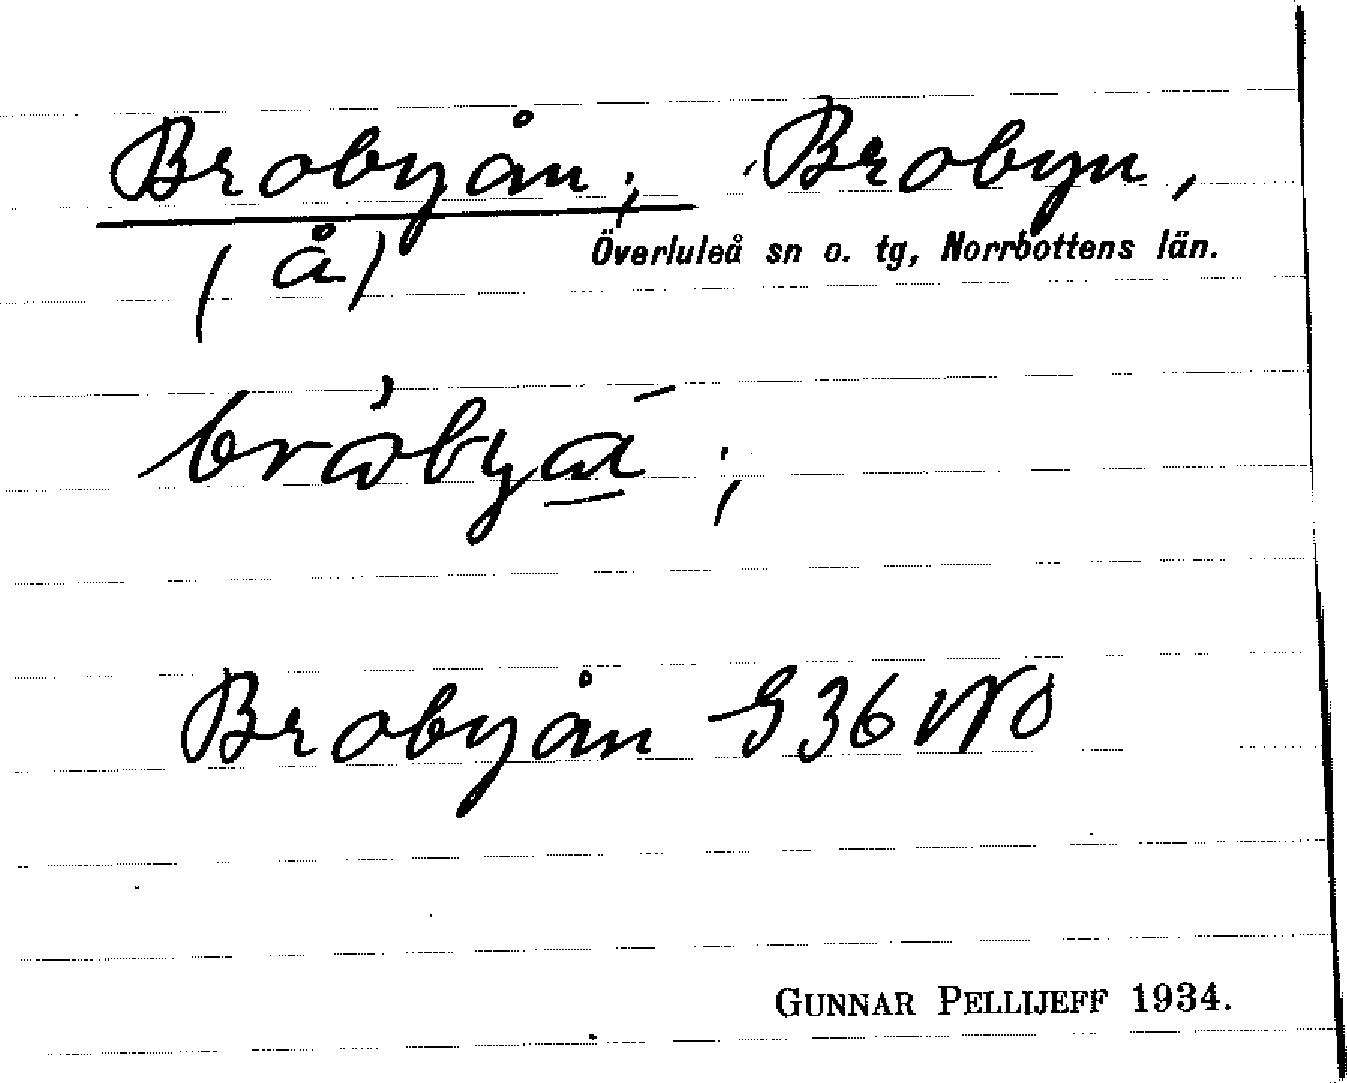 Brobyån; Brobyn,
(å) Överluleå sn o. tg, Norrbottens län.
bròbya͟ ́;
Brobyån G36 NO
GUNNAR PELLIJEFF 1934.